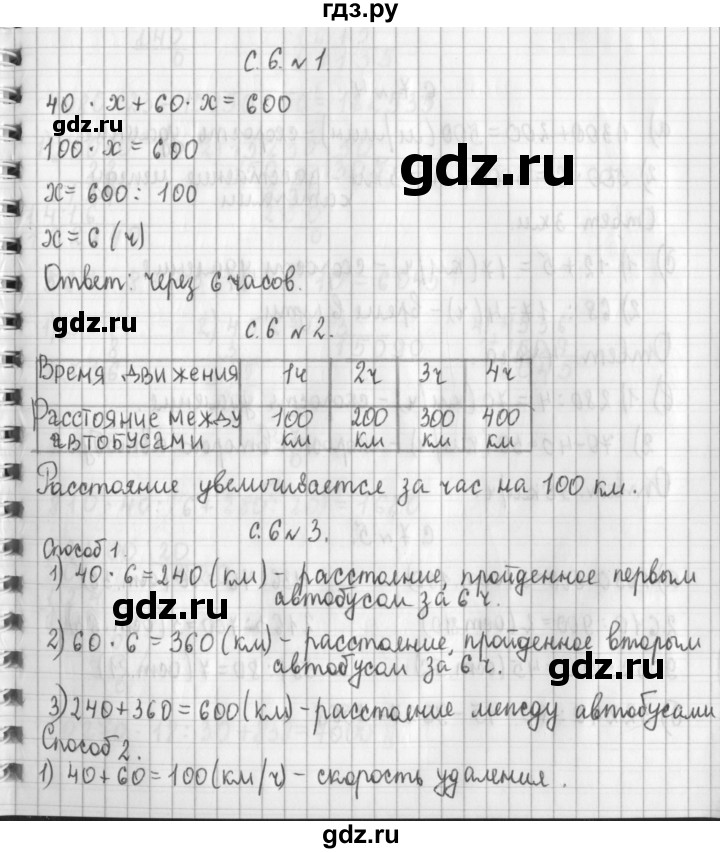 гдз.ру
с. 6. № 1.
40 · x + 60 · x = 600
gdz.ru
100 · x = 600
gdz.ru
x = 600 : 100
x = 6 (ч)
Ответ: через 6 часов.
gdz.ru
с. 6 № 2.
Время движения 1ч 2ч 3ч 4ч
Расстояние между автобусами 100 км 200 км 300 км 400 км
Расстояние увеличивается за час на 100 км.
с. 6 № 3.
Способ 1.
1) 40 · 6 = 240 (км) - расстояние, пройденное первым
автобусом за 6 ч.
gdz.ru
2) 60 · 6 = 360 (км) - расстояние, пройденное вторым
автобусом за 6 ч.
gdz.ru
3) 240 + 360 = 600 (км) - расстояние между автобусами
Способ 2.
gdz.ru
1) 40 + 60 = 100 (км/ч) - скорость удаления.
gdz.ru